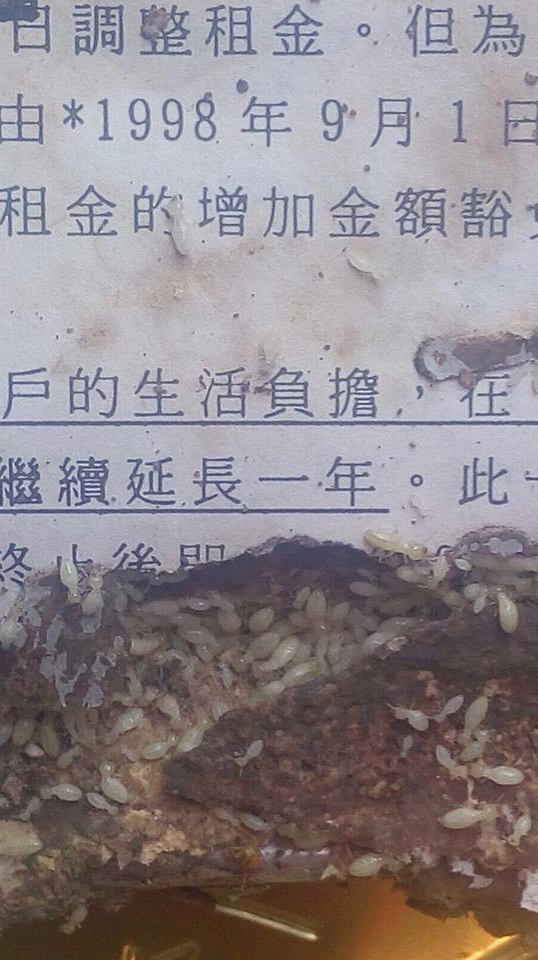 日調整租金。但為
由*1998年9月1日
租金的增加金額豁
戶的生活負擔，在
繼續延長一年。此
終止後即